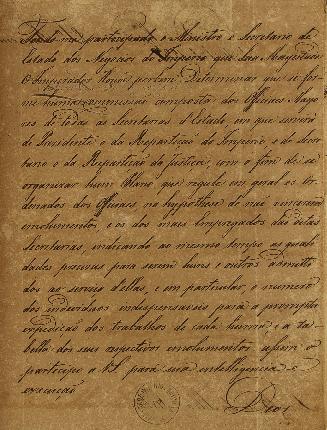 Tendo me participado o Ministro e Secretario de
Estado dos Negocios do Imperio que Sua Magestade
O Imperador Houve por bem Determinar que se for-
me huma commissão composta dos Officiaes Mayo-
res de todas as Secretarias d'Estado em que servirá
de Presidente o da Repartição do Imperio e de Secre-
tario o da Repartição da Justiça, com o fim de se
organizar hum Plano que regule em geral os Or-
denados dos Officiaes na hypothese de não vencerem
emolumentos, e os dos mais Empregados das ditas
Secretarias, indicando ao mesmo tempo as quali-
dades precisas para serem huns e outros admitti-
dos ao serviço dellas, e em particular o numero
dos individuos indispensaveis para a prompta
expedição dos trabalhos de cada huma e a ta-
bella dos seus respectivos emolumentos
participo a VS. para sua intelligencia e
execução
Deos